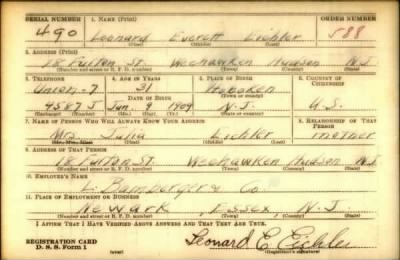 SERIAL NUMBER 1. NAME (Print) ORDER NUMBER
490 Leonard Everett Eichler 588
(First) (Middle) (Last)
2. ADDRESS (Print)
18 Fulton St. Weehawken Hudson N.J.
(Number and street or R. F. D. number) (Town) (County) (State)
3. TELEPHONE 4. AGE IN YEARS 5. PLACE OF BIRTH 6. COUNTRY OF CITIZENSHIP
Union-7 31 Hoboken
DATE OF BIRTH (Town or county)
4587 J Jan 9 1909 N.J. U.S.
(Exchange) (Number) (Mo.) (Day) (Yr.) (State or country)
7. NAME OF PERSON WHO WILL ALWAYS KNOW YOUR ADDRESS 8. RELATIONSHIP OF THAT PERSON
Mrs. Julia Eichler mother
(Mr., Mrs., Miss) (First) (Middle) (Last)
9. ADDRESS OF THAT PERSON
18 Fulton St. Weehawken Hudson N.J.
(Number and street or R. F. D. number) (Town) (County) (State)
10. EMPLOYER'S NAME
L. Bamberger & Co.
11. PLACE OF EMPLOYMENT OR BUSINESS
Newark, Essex N.J.
(Number and street or R. F. D. number) (Town) (County) (State)
I AFFIRM THAT I HAVE VERIFIED ABOVE ANSWERS AND THAT THEY ARE TRUE.
REGISTRATION CARD
D. S. S. Form 1
(over)
Leonard E. Eichler
(Registrant's signature)